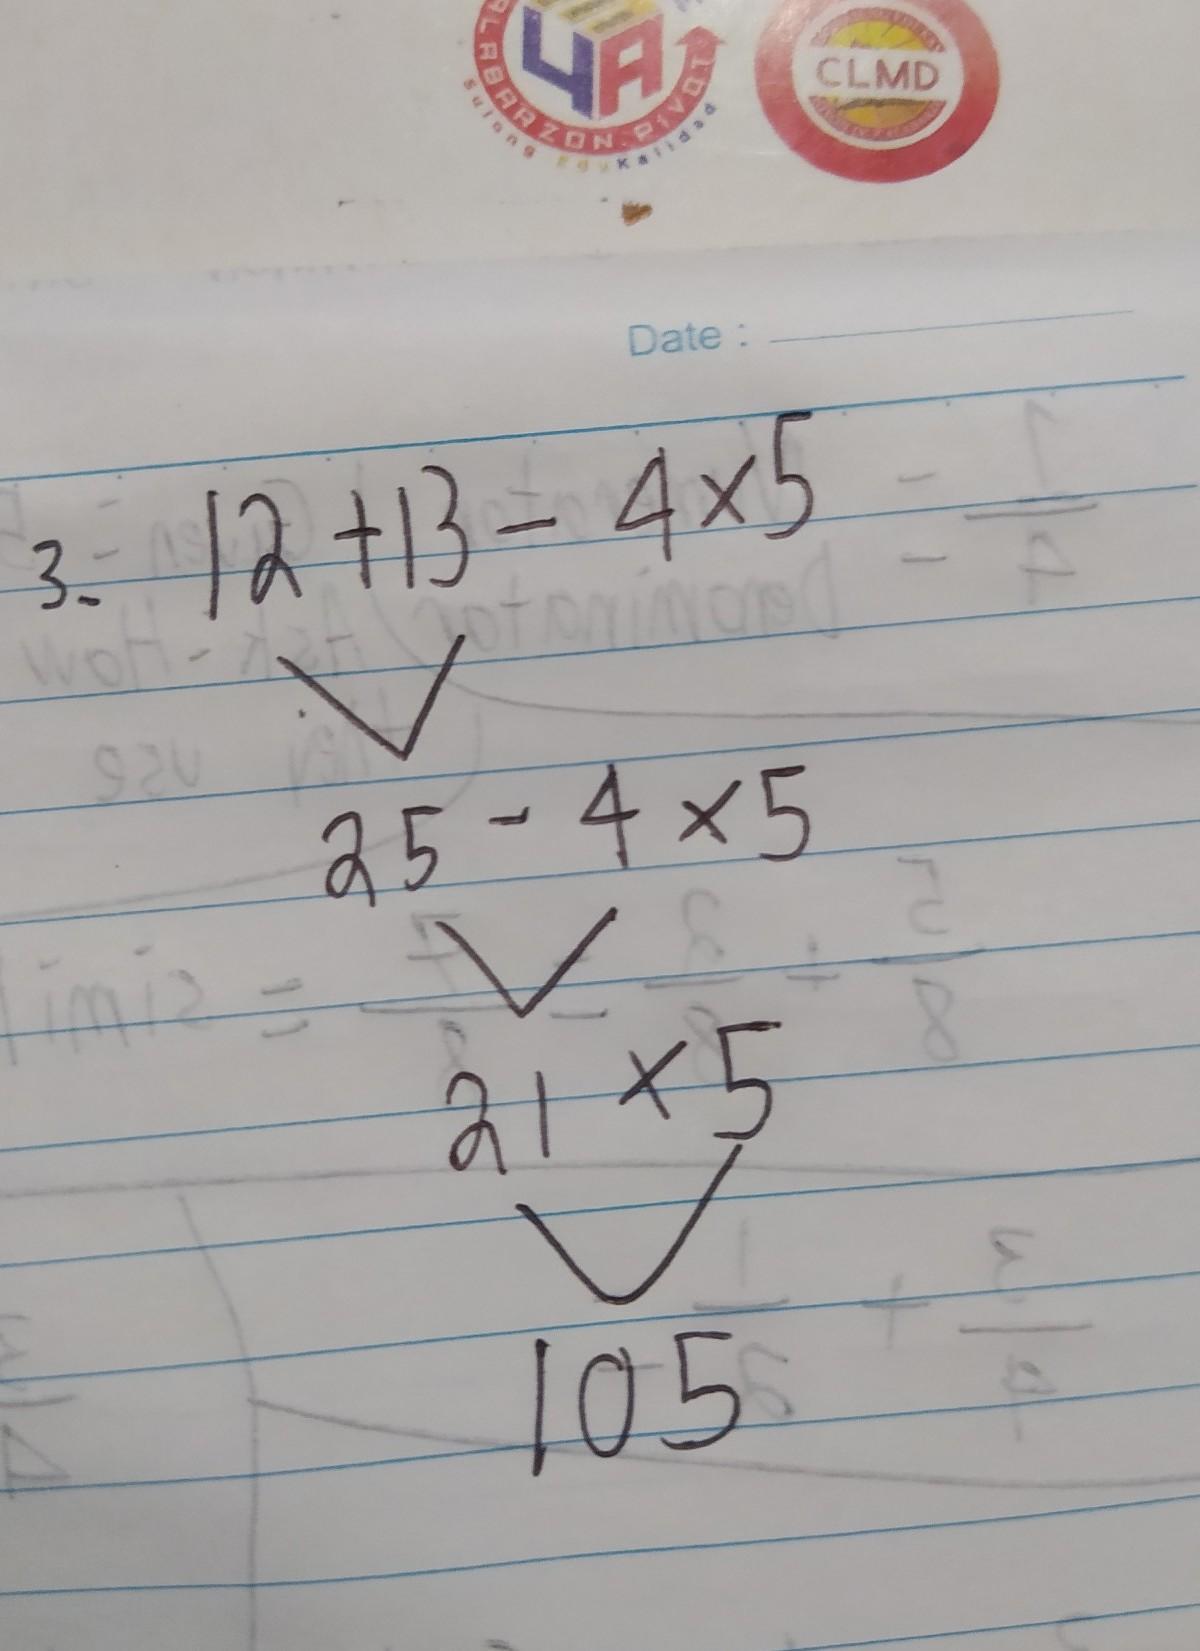 4A
LABARZON.PIVOT
Sulong EduKalidad
CLMD
Date :
3. 12 + 13 - 4 x 5
25 - 4 x 5
21 x 5
105